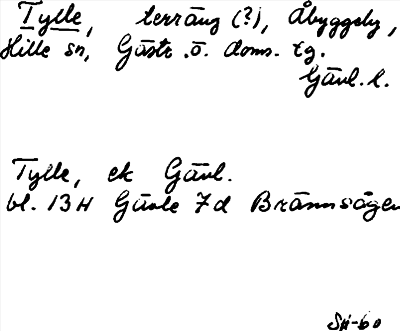 Tylle, terräng (?), Åbyggeby,
Hille sn, Gästr. ö. doms. tg.
Gävl. l.
Tylle, ek Gävl.
bl. 13 H Gävle 7 d Brännsågen
SH-60